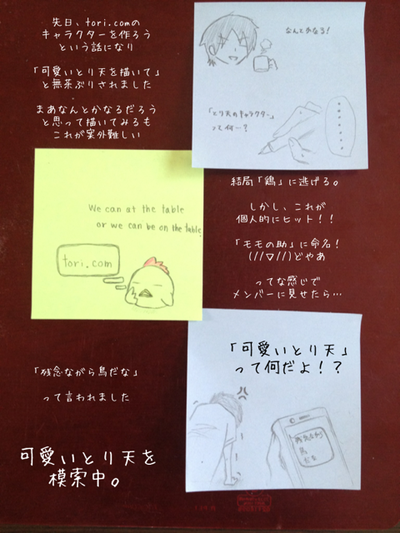 先日、tori.comの
キャラクターを作ろう
という話になり
「可愛いとり天を描いて」
と無茶ぶりされました
まあなんとかなるだろう
と思って描いてみるも
これが案外難しい
なんとかなる!
「とり天のキャラクター」
って何…?
We can at the table
or we can be on the table!
tori.com
結局「鶏」に逃げる。
しかし、これが
個人的にヒット!!
「モモの助」に命名!
(///▽///)どやあ
ってな感じで
メンバーに見せたら…
「可愛いとり天」
って何だよ!?
「残念ながら鳥だな」
って言われました
可愛いとり天を
模索中。